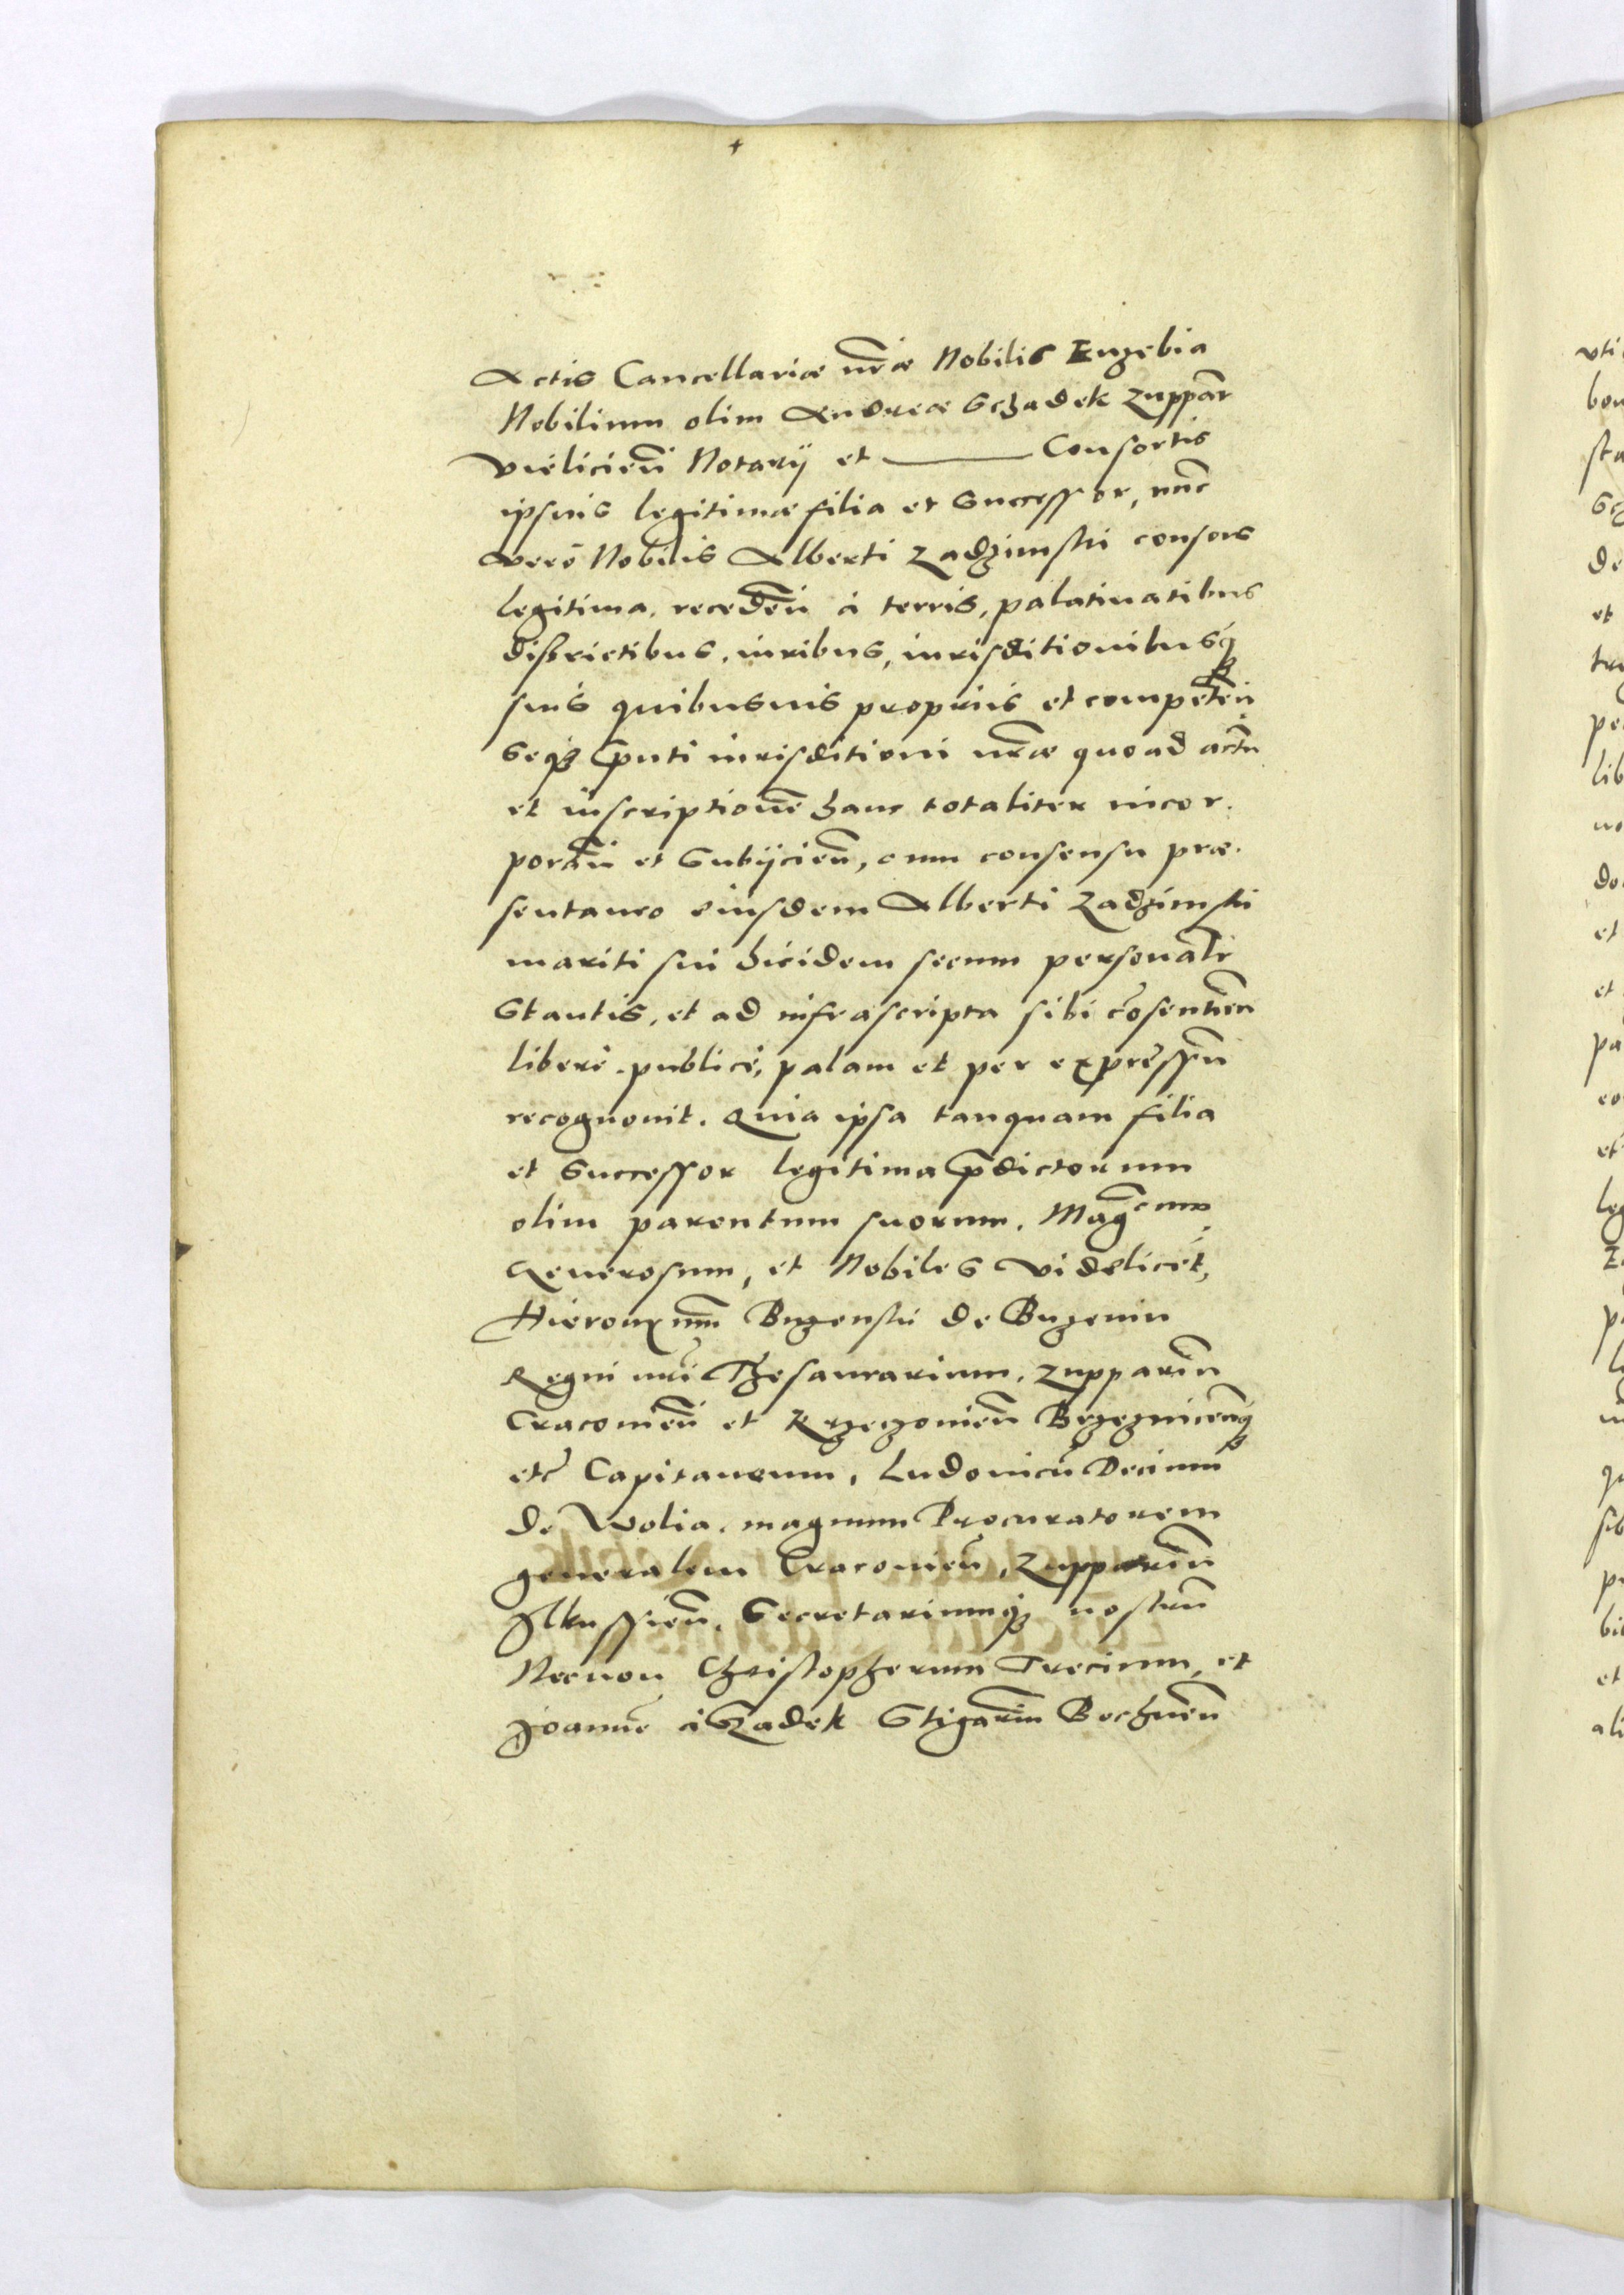 Actis Cancellariæ nr̃æ Nobilis Euzebia
Nobilium olim Andreæ Schadek Zuppar̃
Vieliciẽn Notarij et ——— Consortis
ipsius legitimæ filia et Successor, nũc
verò Nobilis Alberti Zadzimski consors
legitima, recedẽn à terris, palatinatibus
districtibus, iuribus, iurisditionibusq₃
suis quibusuis proprijs et competẽn
Seq₃ p̃nti iurisditioni nr̃æ quo ad actũ
et inscriptionẽ hanc totaliter incor-
porãn et Subijciẽn, cum consensu præ-
sentaneo eiusdem Alberti Zadzimski
mariti sui hicidem secum personalr̃
Stantis, et ad infrascripta sibi cõsentieñ
liberè, publicè, palam et per expressũ
recognouit. Quia ipsa tanquam filia
et Successor legitima p̃dictorum
olim parentum suorum, Mag̃cum
Generosum, et Nobiles videlicet,
Hieronymũ Buzenski de Buzenin
Regni nr̃i Thesaurarium, Zupparũ
Cracouiẽn et Krzeczouiẽn Brzeznicẽnq₃
etc̃ Capitaneum, Ludouicũ Decium
de Wolia, magnum Procuratorem
generalem Cracouieñ, Zupparũ
Ilkussieñ, Secretariumq₃ nostrũ
Necnon Christopherum Trecium, et
Joannẽ à Szadek Stigarũ Bochnẽn
uti
bon
sta
de
et
per
lib
do
et
et
pa
et
leg
qu
sib
bil
et
ali